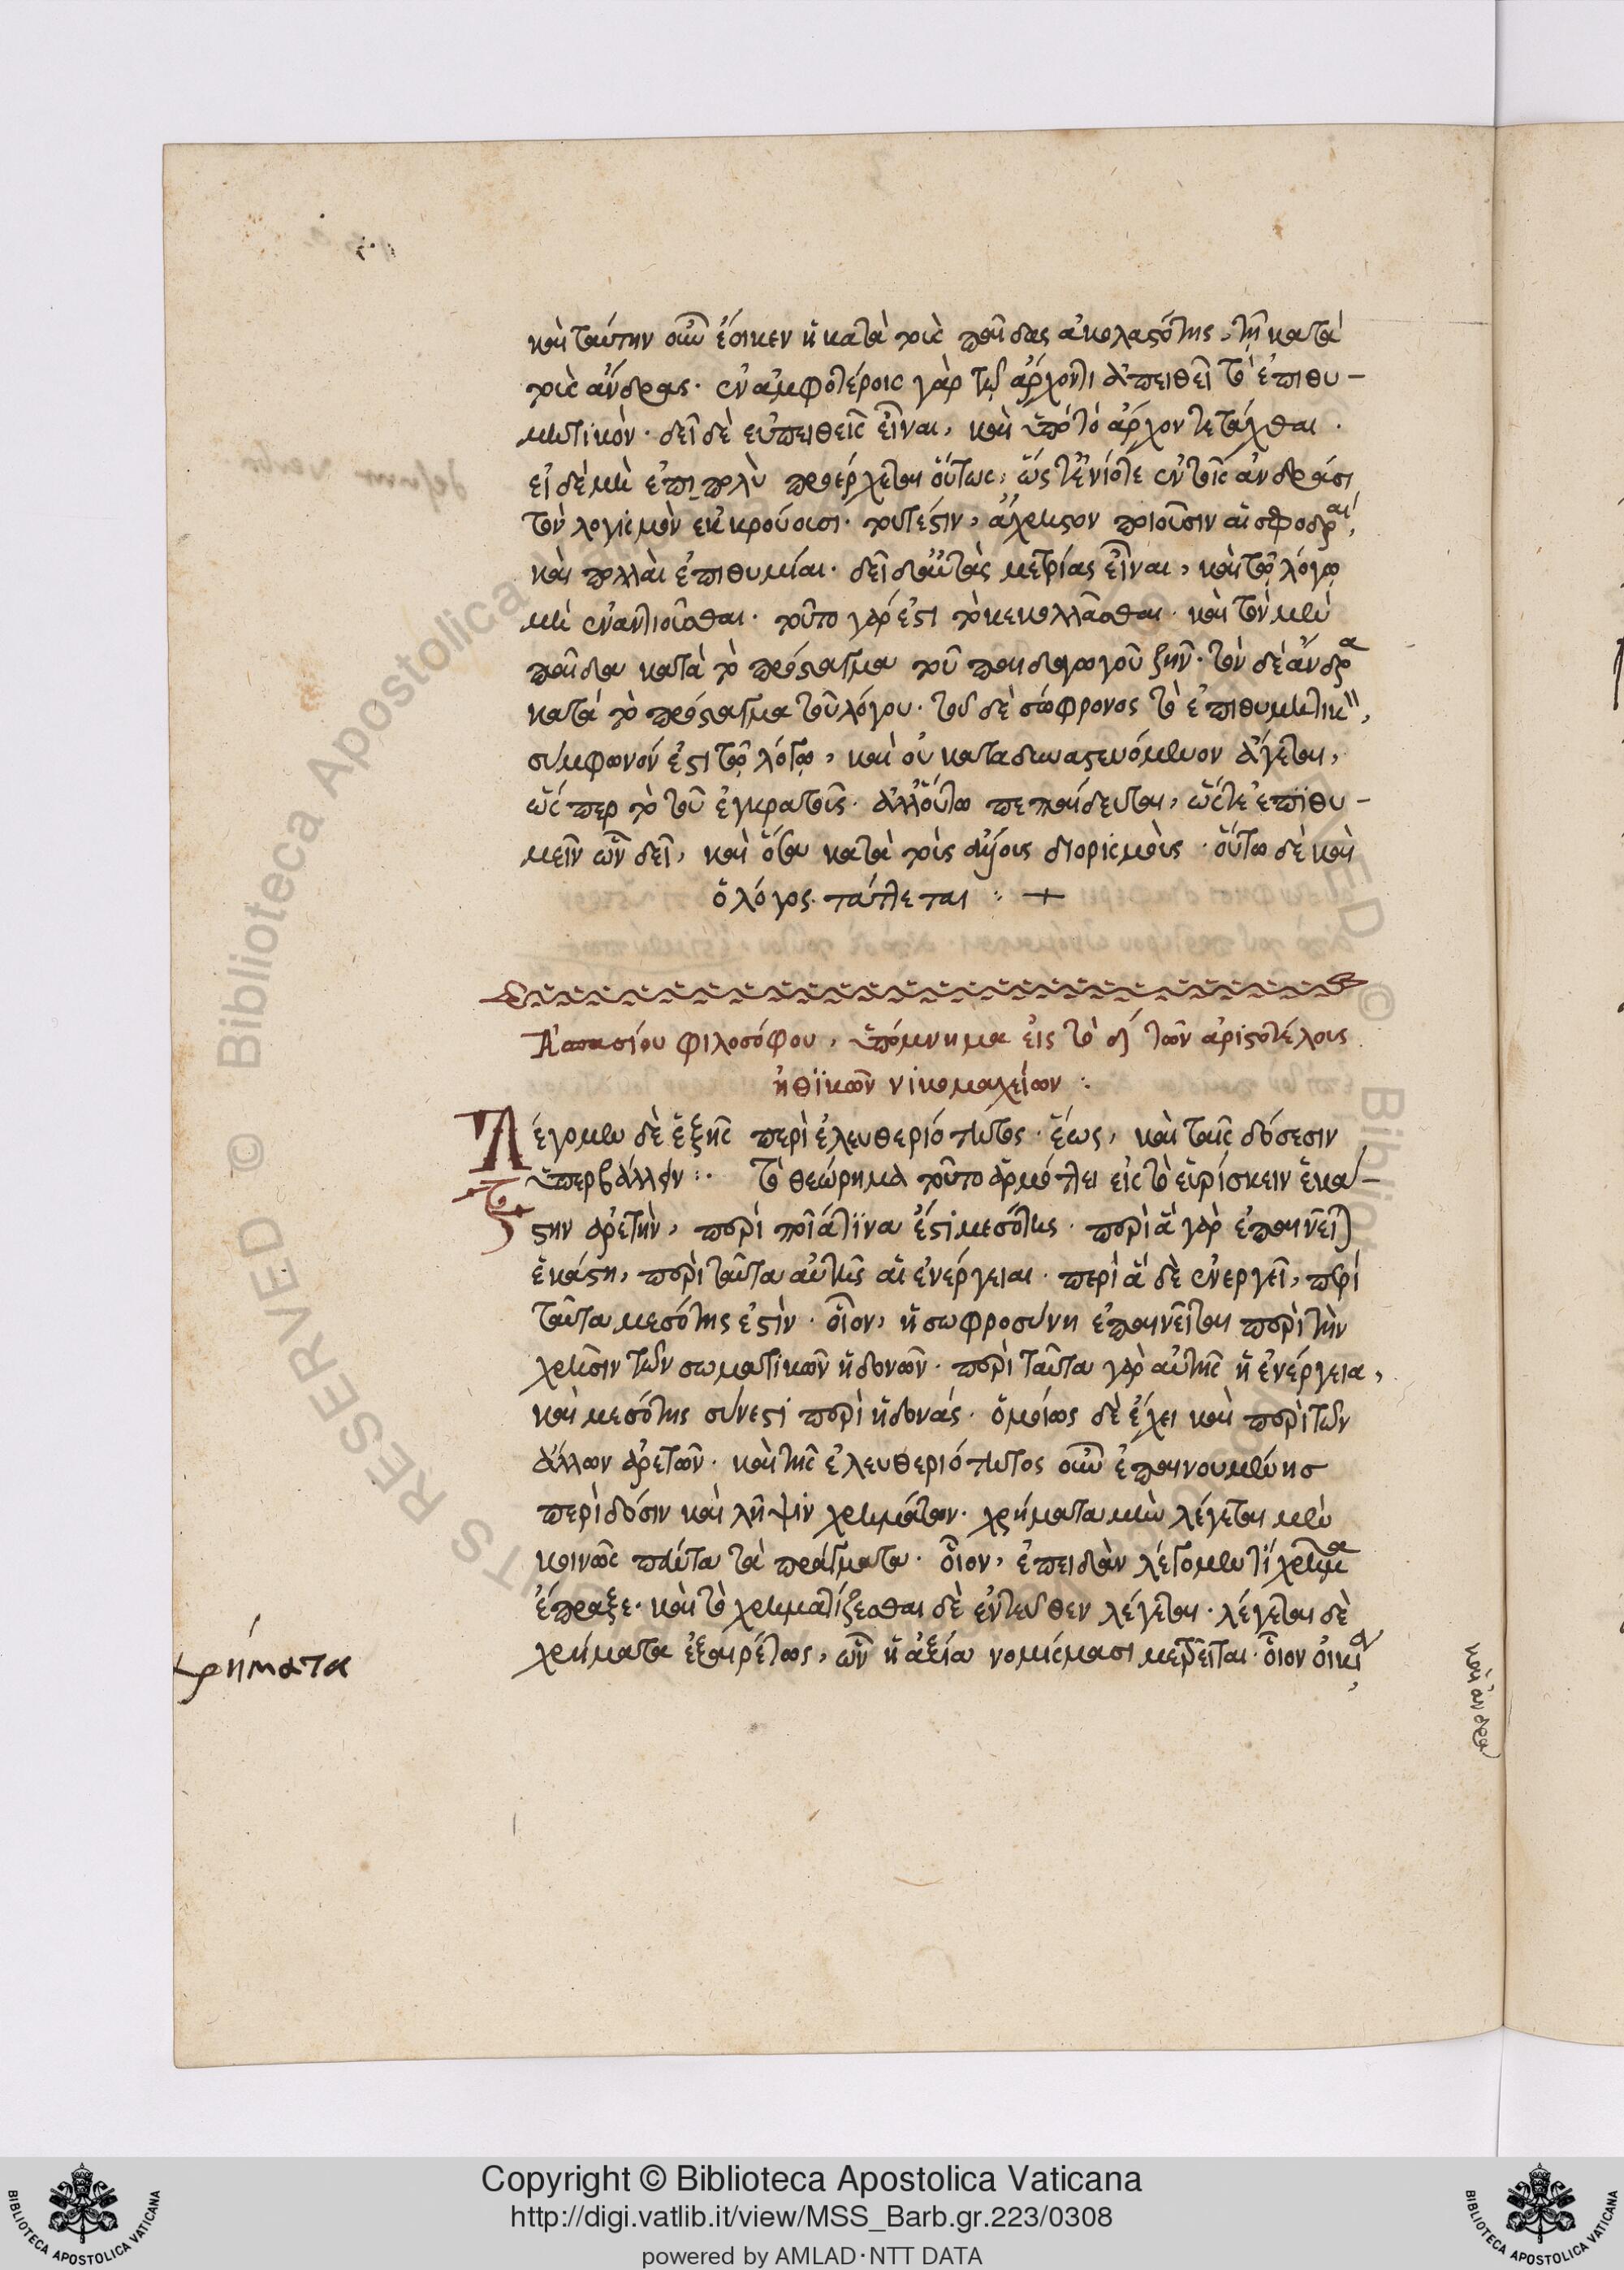 καὶ ταύτην οὖν ἔοικεν ἡ κατὰ τοὺς παῖδας ἀκολαςότης, τῇ κατὰ
τοὺς ἄνδρας. ἐν ἀμφοτέροις γὰρ τῷ ἄρχοντι ἀπειθεῖ τὸ ἐπιθυ-
μητικὸν. δεῖ δὲ εὐπειθεῖς εἶναι, καὶ ὑπὸ τὸ ἄρχον τετάχθαι.
εἰ δὲ μὴ ἐπιπολὺ προέρχεται οὕτως, ὥς τ' ἐνίοτε ἐν τοῖς ἀνδράσι
τὸν λογισμὸν ἐκκρούουσι. τουτέςιν, ἄχρηςον ποιοῦσιν αἱ σφοδραὶ,
καὶ πολλαὶ ἐπιθυμίαι. δεῖ δ' αὐτὰς μετρίας εἶναι, καὶ τῷ λόγῳ
μὴ ἐναντιοῦσθαι. τοῦτο γάρ ἐςι τὸ κεκολλᾶσθαι. καὶ τὸν μὲν
παῖδα κατὰ τὸ πρόςαγμα τοῦ παιδαγωγοῦ ζῆν. τὸν δὲ ἄνδρα
κατὰ τὸ πρόςαγμα τοῦ λόγου. τοῦ δὲ σώφρονος τὸ ἐπιθυμητικὸν,
σύμφωνόν ἐςι τῷ λόγῳ, καὶ οὐ καταδυναςευόμενον ἄγεται,
ὥςπερ τὸ τοῦ ἐγκρατοῦς. ἀλλ' οὕτω πεπαίδευται, ὥςτε ἐπιθυ-
μεῖν ὧν δεῖ, καὶ ὅτε κατὰ τοὺς διορισμοὺς. οὕτω δὲ καὶ
ὁ λόγος τάττεται :+
Ἀσπασίου φιλοσόφου, ὑπόμνημα εἰς τὸ δ' τῶν ἀριςοτέλους
ἠθικῶν νικομαχείων :
Λέγομεν δὲ ἑξῆς περὶ ἐλευθεριότητος. ἕως, καὶ ταῖς δόσεσιν
ὑπερβάλλειν :. Τὸ θεώρημα τοῦτο ἁρμόττει εἰς τὸ εὑρίσκειν ἑκά-
ςην ἀρετὴν, περὶ ποῖά τινα ἐςὶ μεσότης. περὶ ἃ γὰρ ἐπαινεῖται
ἑκάςη, περὶ ταῦτα αὐτῆς αἱ ἐνέργειαι. περὶ ἃ δὲ ἐνεργεῖ, περὶ
ταῦτα μεσότης ἐςὶν. οἷον, ἡ σωφροσύνη ἐπαινεῖται περὶ τὴν
χρῆσιν τῶν σωματικῶν ἡδονῶν. περὶ ταῦτα γὰρ αὐτῆς ἡ ἐνέργεια,
καὶ μεσότης σύνεςι περὶ ἡδονάς. ὁμοίως δὲ ἔχει καὶ περὶ τῶν
ἄλλων ἀρετῶν. καὶ τῆς ἐλευθεριότητος οὖν ἐπαινουμένης
περὶ δόσιν καὶ λῆψιν χρημάτων. χρήματα μὲν λέγεται μὲν
κοινῶς πάντα τὰ πράγματα. οἷον, ἐπειδὰν λέγομεν τί χρῆμα
ἔπραξε. καὶ τὸ χρηματίζεσθαι δὲ ἐντεῦθεν λέγεται. λέγεται δὲ
χρήματα ἐξαιρέτως, ὧν ἡ ἀξία νομίσμασι μετρεῖται. οἷον οἰκία,
χρήματα
καὶ ἀνδρα
Copyright © Biblioteca Apostolica Vaticana
http://digi.vatlib.it/view/MSS_Barb.gr.223/0308
powered by AMLAD·NTT DATA